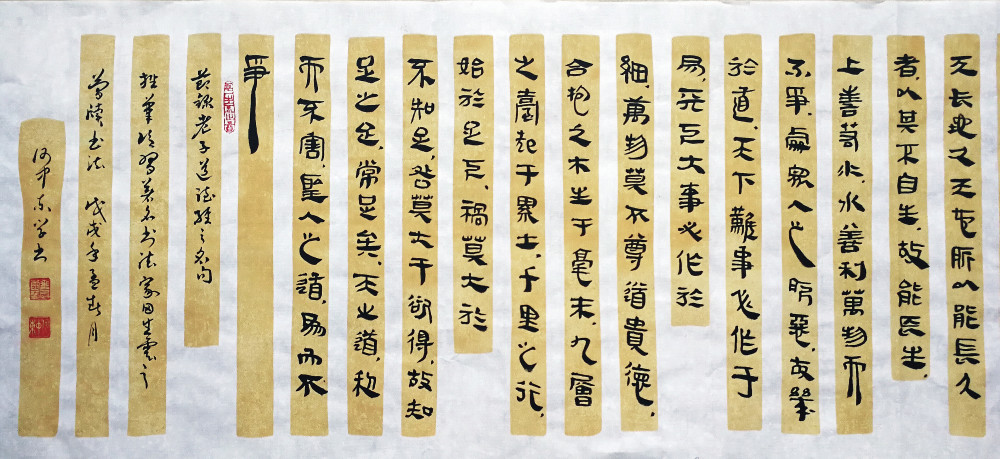 天長地久天地所以能長久
者,以其不自生,故能長生.
上善若水,水善利萬物而
不爭,處衆人之所惡,故幾
於道,天下難事必作于
易,天下大事必作於
細,萬物莫不尊道貴德,
合抱之木生于毫末,九層
之臺起于累土,千里之行,
始於足下,禍莫大於
不知足,咎莫大于欲得,故知
足之足,常足矣,天之道,利
而不害,聖人之道,為而不
爭
録老子道德經之名句
拙筆臨習著名书法家田生雲之
簡牘书法 戊戌年孟春月
河中 书